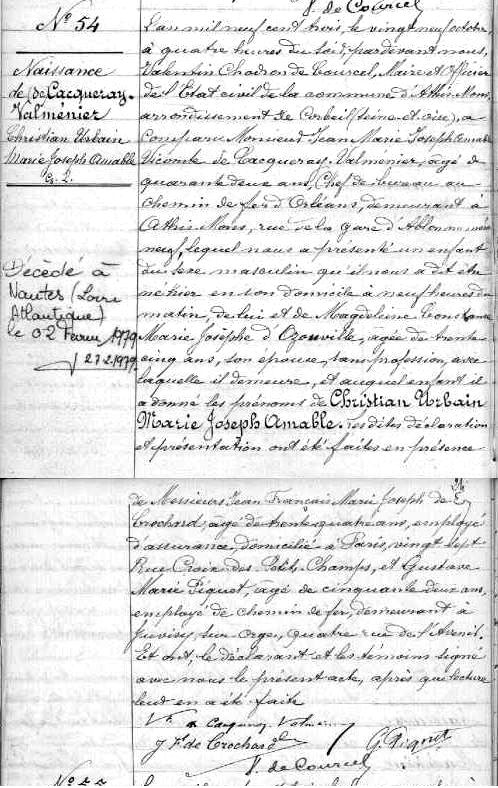 P. de Courcel
N° 54
Naissance
de (De Cacqueray-
Valménier
Christian Urbain
Marie Joseph Amable
Décédé à
Nantes (Loire
Atlantique)
le 02 Février 1979
27-2-1979
L'an mil neuf cent trois, le vingt neuf octobre,
à quatre heures du soir, par devant nous,
Valentin Chodron de Courcel, Maire et Officier
de l'Etat civil de la commune d'Athis-Mons,
arrondissement de Corbeil (Seine-et-Oise), a
comparu Monsieur Jean Marie Joseph Amable
Vicomte de Cacqueray-Valmenier, âgé de
quarante deux ans, Chef de bureau au
chemin de fer d'Orléans, demeurant à
Athis-Mons, rue de la gare d'Ablon numéro
neuf, lequel nous a présenté un enfant
du sexe masculin qu'il nous a dit être
né hier en son domicile à neuf heures du
matin, de lui et de Magdeleine Constance
Marie Josèphe d'Ozouville, agée de trente
cinq ans, son épouse, sans profession, avec
laquelle il demeure, et auquel enfant il
a donné les prénoms de Christian Urbain
Marie Joseph Amable. Les dites déclaration
et présentation ont été faites en présence
de Messieurs Jean François Marie Joseph de
Crochard, âgé de trente quatre ans, employé
d'assurance, domicilié à Paris, vingt sept
Rue Croix des Petits Champs, et Gustave
Marie Piquet, âgé de cinquante deux ans,
employé de chemin de fer, demeurant à
Juvisy sur Orge, quatre rue de l'Avenir.
Et ont, le déclarant et les témoins signé
avec nous le présent acte, après que lecture
leur en a été faite
Vte de Cacqueray Valmenier
J. F. de Crochard
G. Piquet
P. de Courcel
N° 55